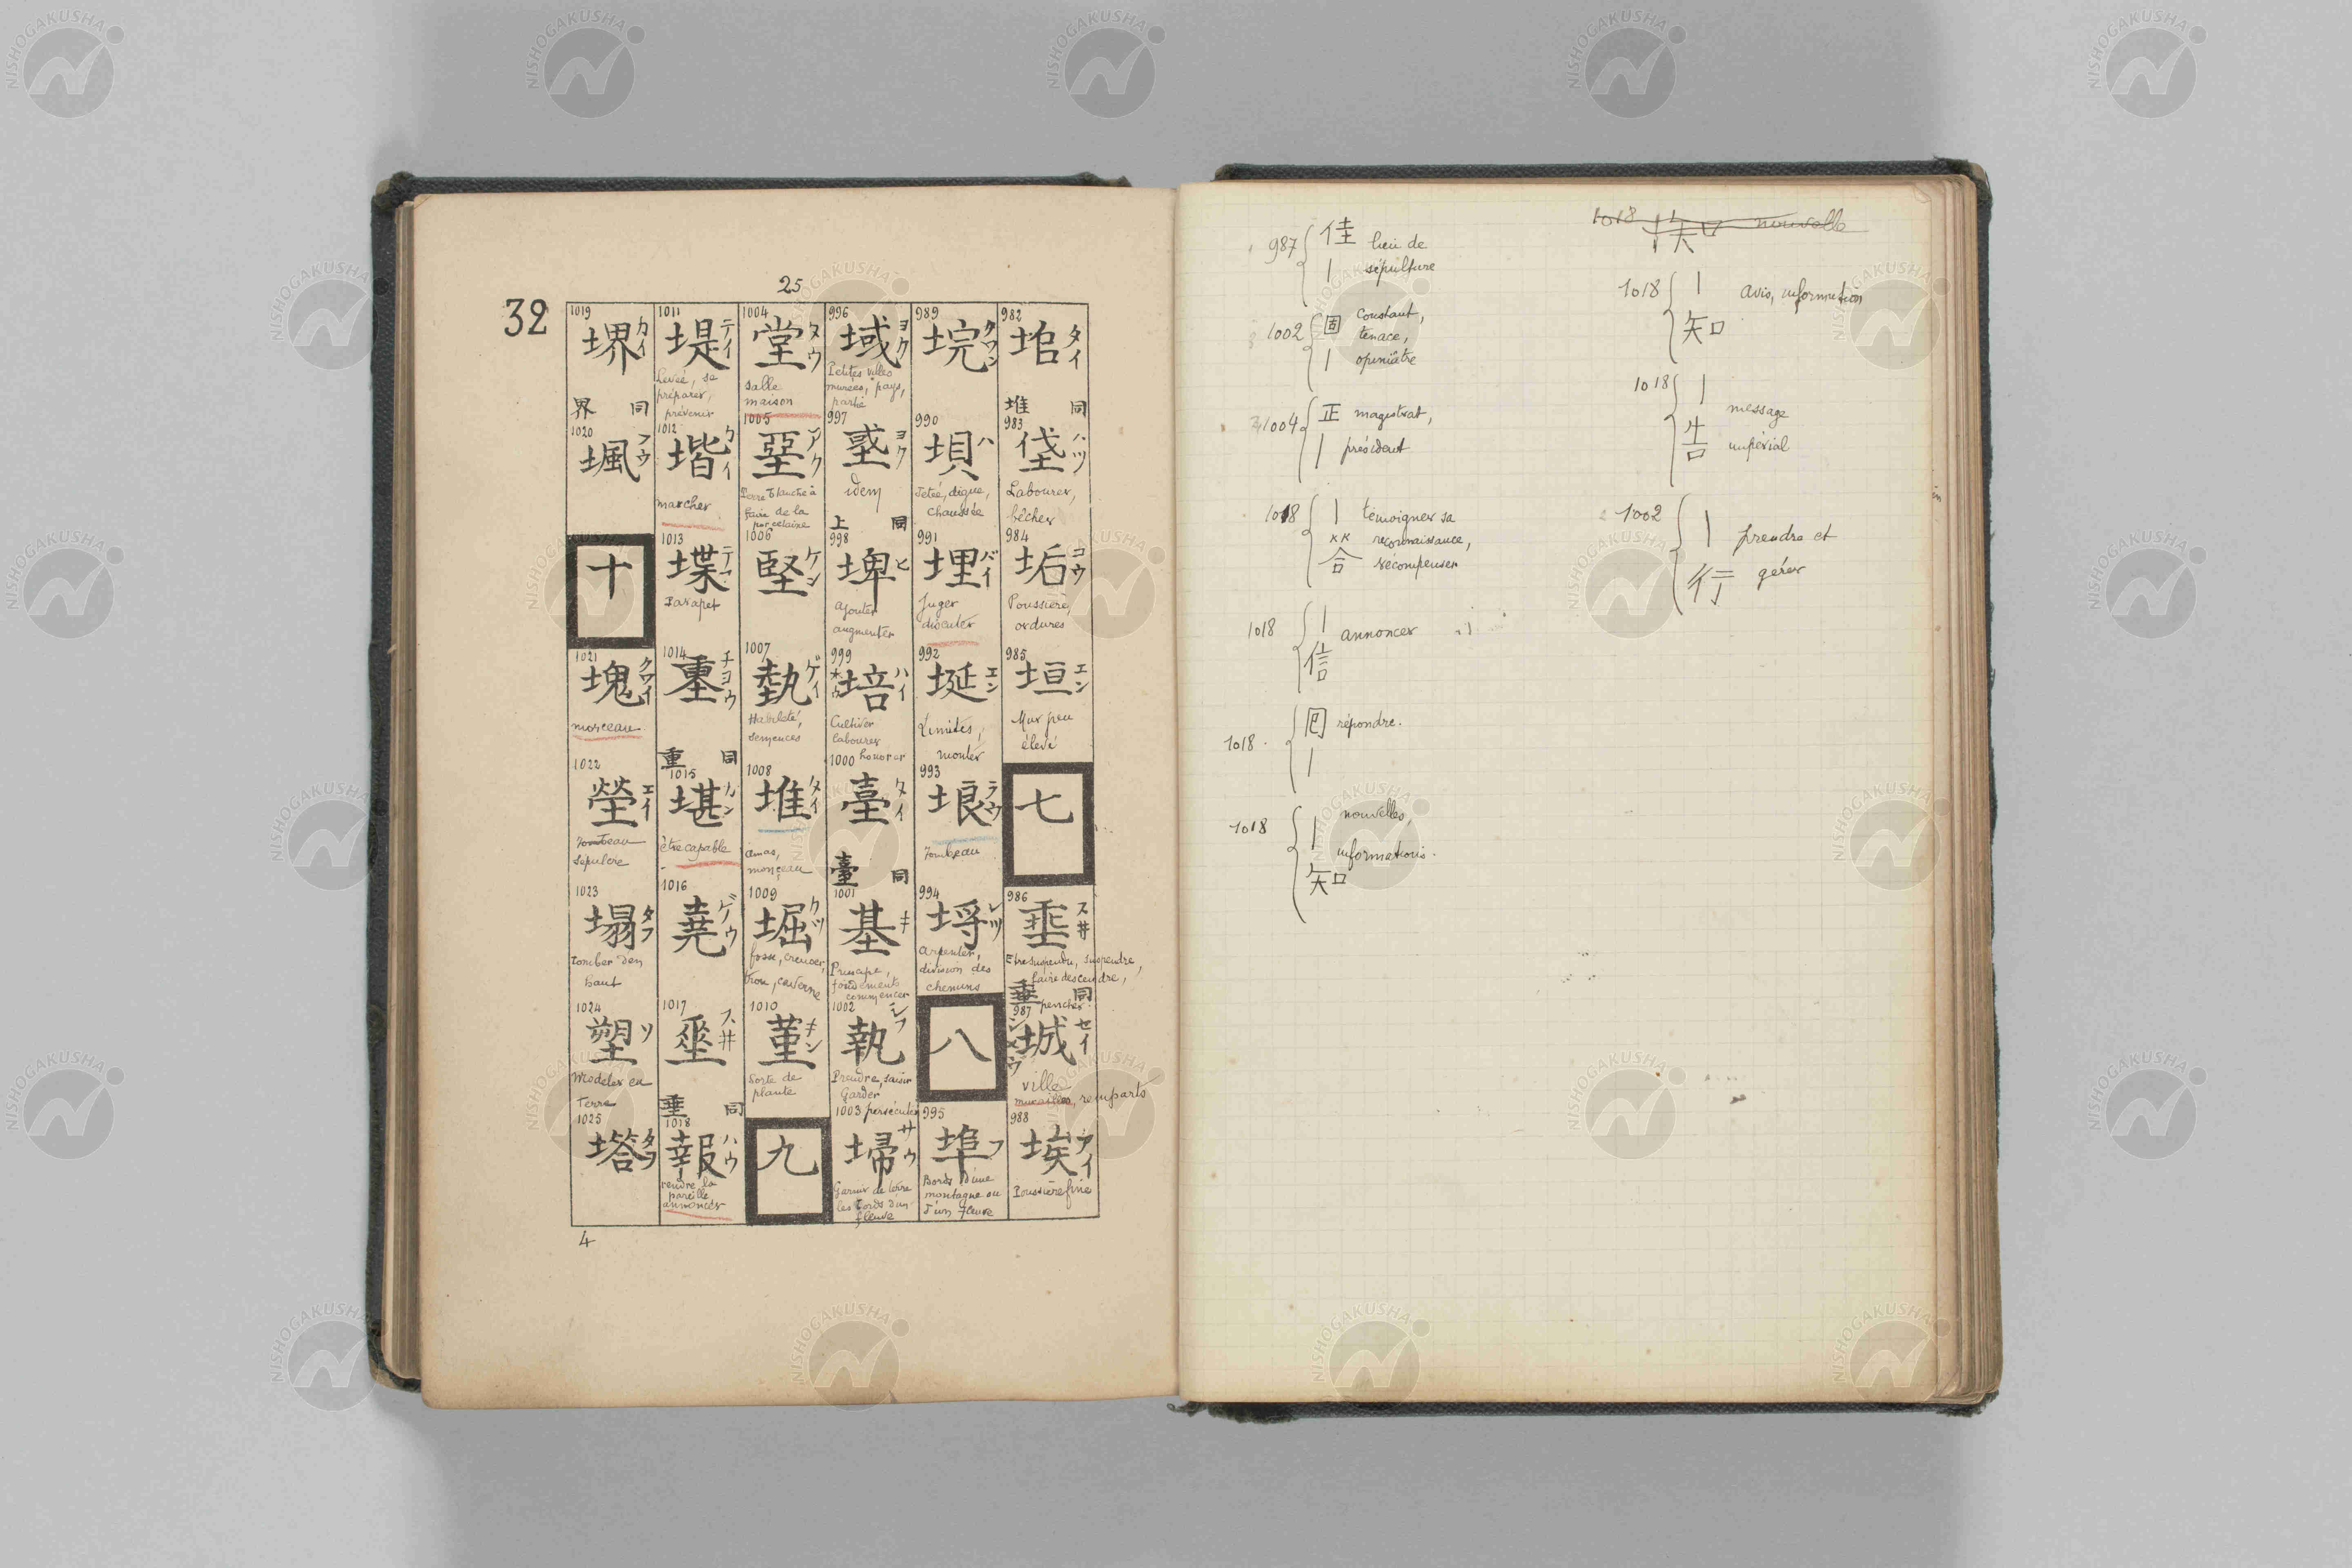 25
32
982
垖
タイ
堆 同
983
垡
ハツ
Labourer,
bêcher
984
垢
コウ
Poussière,
ordures
985
垣
エン
Mur peu
élevé
七
986
垂
スヰ
Etre suspendu, suspendre,
faire descendre,
pencher
埀 同
987
城
セイ
ville
murailles, remparts
988
埃
アイ
Poussière fine
989
垸
クワン
990
埧
ハ
Jetée, digue,
chaussée
991
埋
バイ
Juger
discuter
992
埏
エン
Limites,
monter
993
埌
ラウ
Tombeau
994
埒
レツ
Arpenter,
division des
chemins
八
995
埠
フ
Bords d'une
montagne ou
d'un fleuve
996
域
ヨク
Petites villes
murées, pays,
partie
997
ヨク
idem
上 同
998
埤
ヒ
Ajouter
augmenter
999
培
ハイ
Cultiver
labourer
honorer
1000
臺
タイ
臺 同
1001
基
キ
Principe,
fondements
commencer
1002
執
シフ
Prendre, saisir
Garder
persécuter
1003
埽
サウ
Garnir de terre
les bords d'un
fleuve
1004
堂
タウ
salle
maison
1005
堊
アク
Terre blanche à
faire de la
porcelaine
1006
堅
ケン
1007
埶
ゲイ
Habileté,
semences
1008
堆
タイ
amas,
monceau
1009
堀
クツ
fosse, creuser,
trou, caverne
1010
堇
キン
Sorte de
plante
九
1011
堤
テイ
Levée, se
préparer,
prévenir
1012
堦
カイ
marcher
1013
堞
テフ
Parapet
1014
チヨウ
重 同
1015
堪
カン
être capable
1016
堯
ゲウ
1017
スヰ
垂 同
1018
報
ハウ
rendre la
pareille
annoncer
1019
堺
カイ
界 同
1020
堸
フウ
十
1021
塊
クワイ
morceau
1022
塋
エイ
Tombeau
sépulcre
1023
塌
タフ
Tomber d'en
haut
1024
塑
ソ
Modeler en
Terre
1025
塔
タフ
4
987 佳 lieu de
| sépulture
1002 固 constant,
tenace,
| opiniâtre
1004 正 magistrat,
| président
1018 | témoigner sa
reconnaissance,
答 récompenser
1018 | annoncer
信
1018 回 répondre.
|
1018 | nouvelles,
informations.
知
1018 知 nouvelle
1018 | avis, information
知
1018 | message
告 impérial
1002 | prendre et
行 gérer